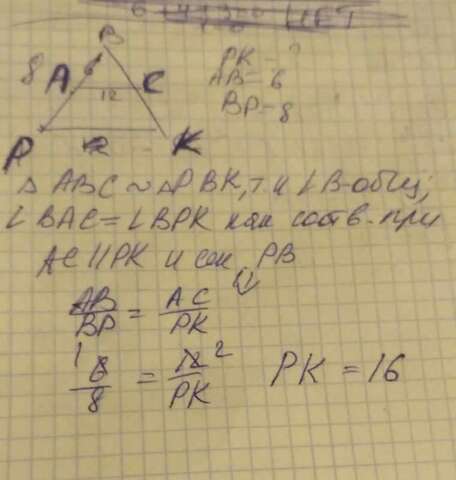 НЕТ
B
8 A 6 C
12
P K
PK - ?
AB = 6
BP = 8
△ ABC ~ △PBK, т.к ∠B-общ;
∠BAC = ∠BPK как соотв. при
AC || PK и сек PB
⇓
AB/BP = AC/PK
1 6/8 = 12/PK 2 PK = 16